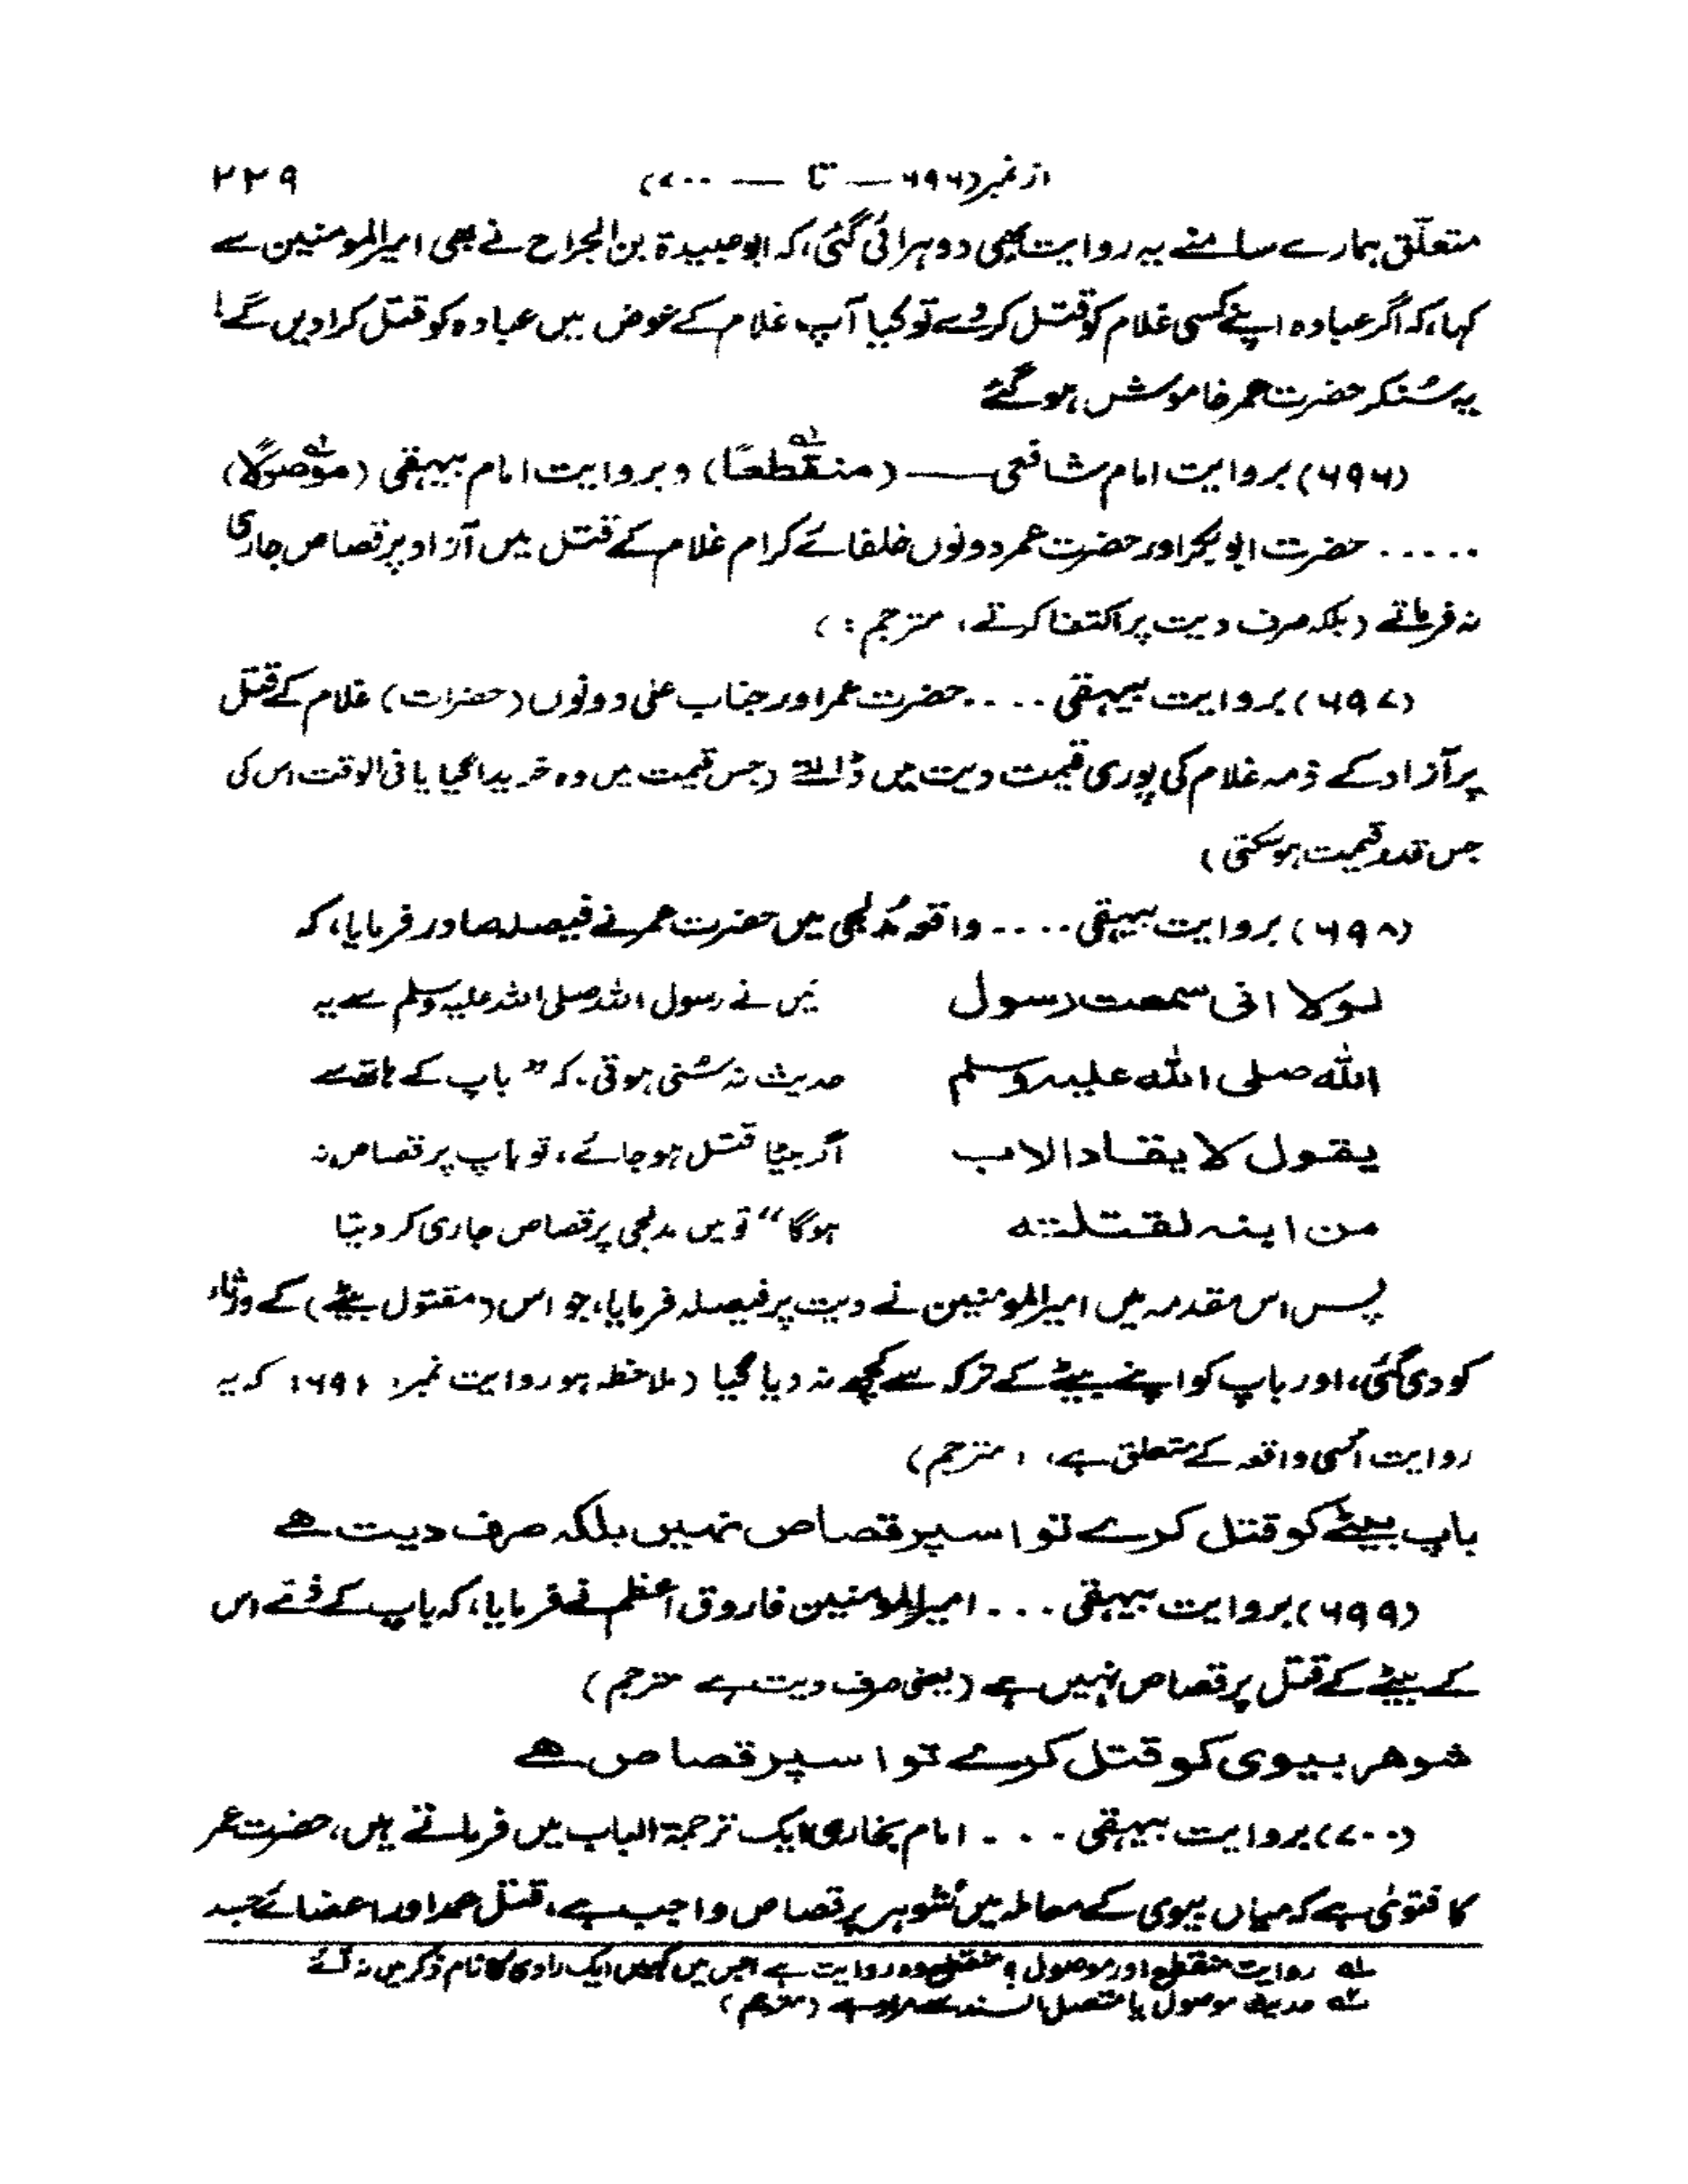 از نمبر (۶۹۶ — تا — ۷۰۰) ۲۲۹
متعلّق ہمارے سامنے یہ روایت بھی دوہرائی گئی، کہ ابوعبیدۃ بن الجراح نے بھی امیرالمومنین سے
کہا، کہ اگر عبادہ اپنے کسی غلام کو قتل کر دے تو کیا آپ غلام کے عوض میں عبادہ کو قتل کرا دیں گے!
یہ سُنکر حضرت عمر خاموش ہو گئے
(۶۹۶) بروایت امام شافعی —— (منقطعًا)؎۱ و بروایت امام بیہقی (موصولًا)؎۲
..... حضرت ابوبکر اور حضرت عمر دونوں خلفائے کرام غلام کے قتل میں آزاد پر قصاص جاری
نہ فرماتے (بلکہ صرف دیت پر اکتفا کرتے، مترجم :)
(۶۹۷) بروایت بیہقی .... حضرت عمر اور جناب علی دونوں (حضرات) غلام کے قتل
پر آزاد کے ذمہ غلام کی پوری قیمت دیت میں ڈالتے (جس قیمت میں وہ خریدا گیا یا فی الوقت اس کی
جس قدر قیمت ہو سکتی)
(۶۹۸) بروایت بیہقی .... واقعہ مُدلجی میں حضرت عمر نے فیصلہ صادر فرمایا، کہ
لولا انی سمعت رسول میں نے رسول اللہ صلی اللہ علیہ وسلم سے یہ
اللہ صلی اللہ علیہ وسلم حدیث نہ سُنی ہوتی۔ کہ "باپ کے ہاتھ سے
یقول لا یقاد الاب اگر بیٹا قتل ہو جائے، تو باپ پر قصاص نہ
من ابنہ لقتلتہ ہوگا" تو میں مدلجی پر قصاص جاری کر دیتا
پس اس مقدمہ میں امیرالمومنین نے دیت پر فیصلہ فرمایا، جو اس (مقتول بیٹے) کے ورثاء
کو دی گئی، اور باپ کو اپنے بیٹے کے ترکہ سے کچھ نہ دیا گیا (ملاحظہ ہو روایت نمبر: ۶۹۱، کہ یہ
روایت اسی واقعہ کے متعلق ہے، مترجم)
باپ بیٹے کو قتل کرے تو اسپر قصاص نہیں بلکہ صرف دیت ہے
(۶۹۹) بروایت بیہقی ... امیرالمومنین فاروق اعظم نے فرمایا، کہ باپ کے ذمے اس
کے بیٹے کے قتل پر قصاص نہیں ہے (یعنی صرف دیت ہے مترجم)
شوہر بیوی کو قتل کرے تو اسپر قصاص ہے
(۷۰۰) بروایت بیہقی ... امام بخاری ایک ترجمۃ الباب میں فرماتے ہیں، حضرت عمر
کا فتویٰ ہے کہ میاں بیوی کے معاملہ میں شوہر پر قصاص واجب ہے، قتل عمد اور اعضائے جسد
؎۱ روایت منقطع اور موصول؛ منقطع وہ روایت ہے جس میں کہیں ایک راوی کا نام ذکر میں نہ آئے
؎۲ حدیث موصول یا متصل السند سے مراد ہے (مترجم)